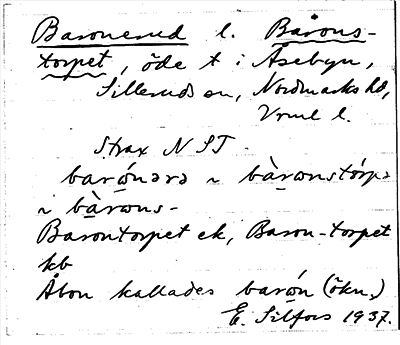 Baronerud l. Bårons-
torpet, öde t i Åsebyn,
Silleruds sn, Nordmarks hd,
Vrml l.
Strax N ST
barónərə ~ bàronstórpə
~ bàrons-
Barontorpet ek, Baron-torpet
kb
Åbon kallades barón (ökn.)
E. Silfors 1937.